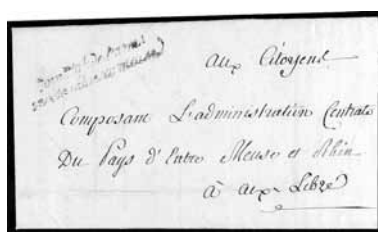 aux Citoyens
Composant L'administration Centrale
Du Pays d'Entre Meuse et Rhin
à aix Libre